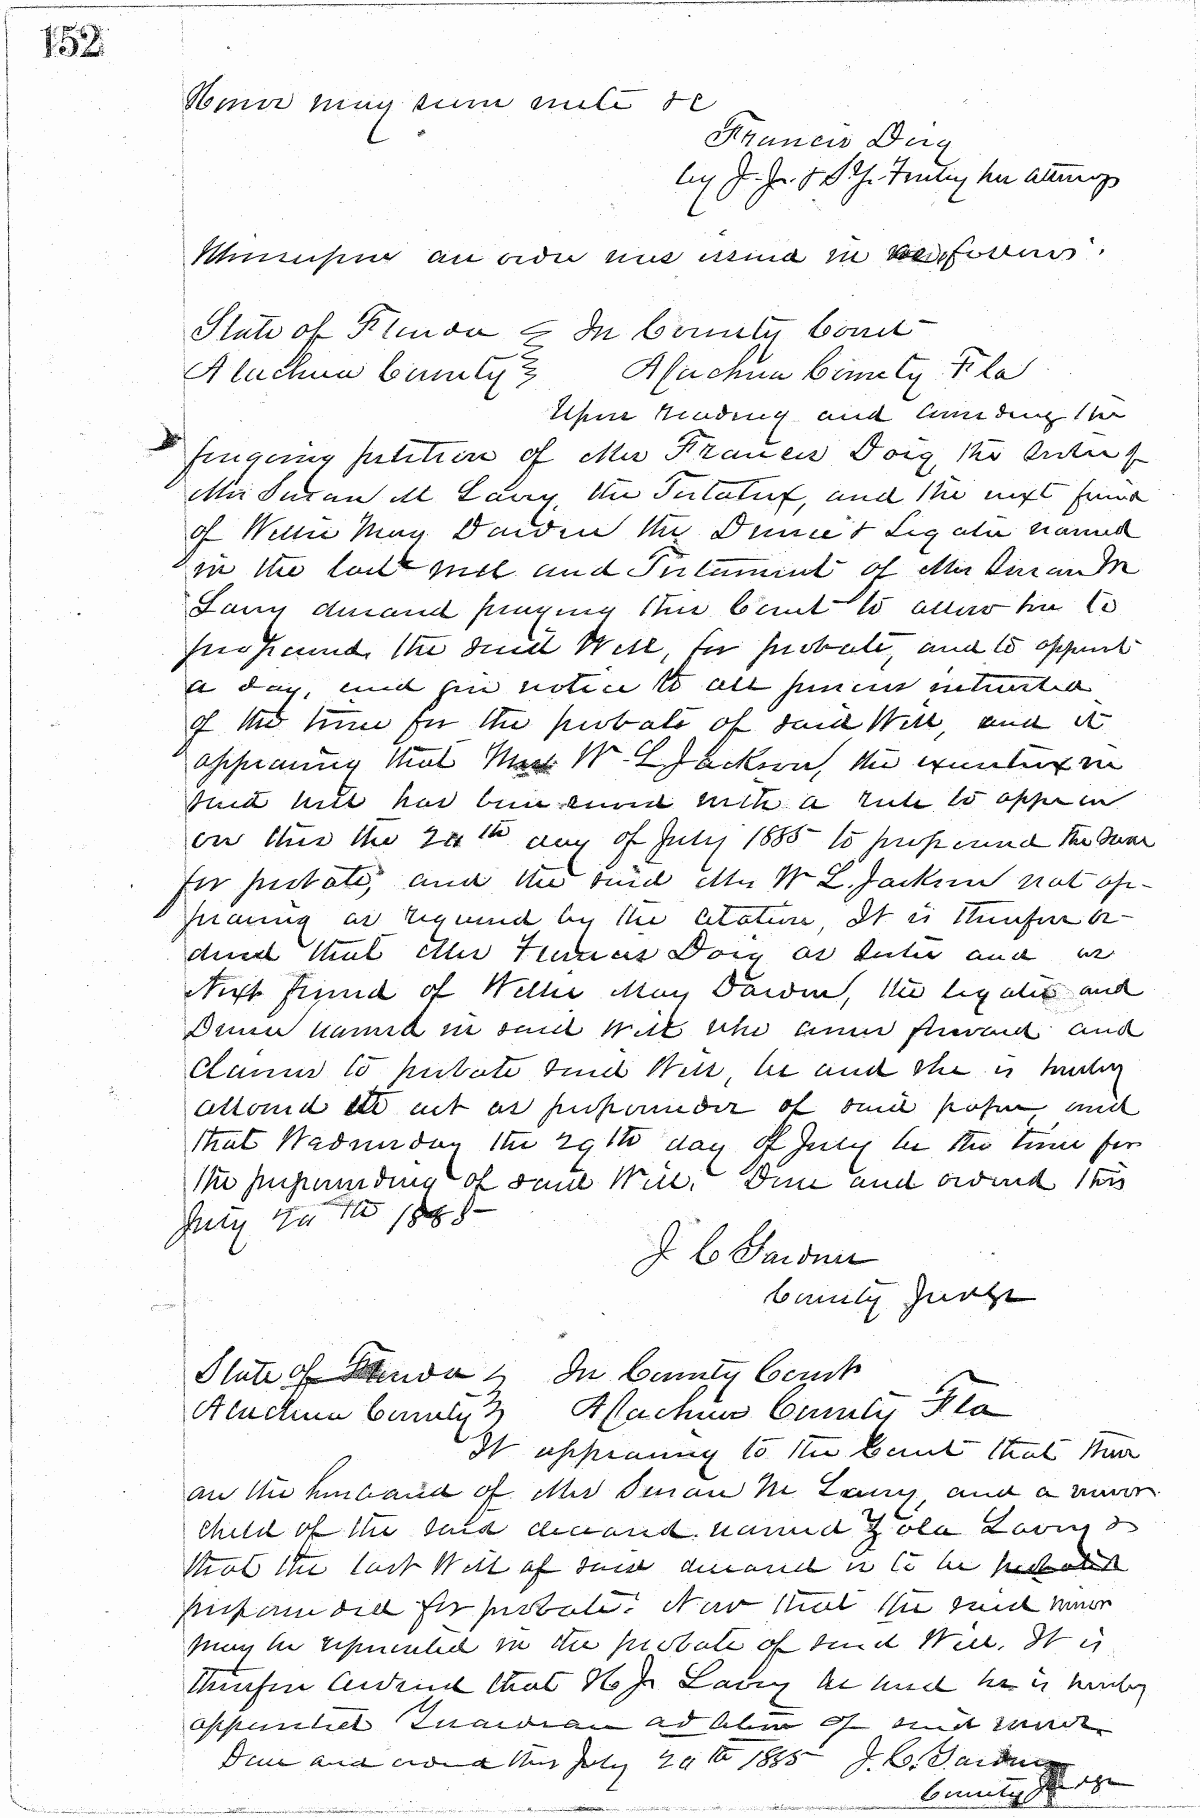 152
Honor may seem mete &c
Francis Doig
by J. J. & S. Y. Finley her attorneys
Whereupon an order was issued in as follows.
State of Florida } In County Court
Alachua County } Alachua County Fla
Upon reading and considering the
foregoing petition of Mrs Francis Doig, the sister of
Mrs Susan M Lavry, the Testatrix, and the next friend
of Willie May Darden the Devisee & Legatee named
in the last will and Testament of Mrs Susan M
Lavry deceased praying this Court to allow her to
propound the said Will, for probate, and to appoint
a day, and give notice to all persons interested
of the time for the probate of said Will, and it
appearing that Mrs W. L Jackson, the executrix in
said will has been served with a rule to appear
on this the 20th day of July 1885 to propound the same
for probate, and the said Mrs W L. Jackson not ap-
pearing as required by the citation, It is therefore or-
dered that Mrs Francis Doig as sister and as
Next friend of Willie May Darden, the legatee and
Devisee named in said Will who comes forward and
claims to probate said Will, be and she is hereby
allowed to act as propounder of said paper, and
that Wednesday the 29th day of July be the time for
the propounding of said Will. Done and ordered this
July 20th 1885
J C Gardner
County Judge
State of Florida } In County Court
Alachua County } Alachua County Fla
It appearing to the Court that there
are the husband of Mrs Susan M Lavry, and a minor
child of the said deceased named Zola Lavry &
that the last Will of said deceased is to be probated
propounded for probate: Now that the said minor
may be represented in the probate of said Will. It is
therefore ordered that H J. Lavry be and he is hereby
appointed Guardian ad litem of said minor.
Done and ordered this July 20th 1885 J. C. Gardner
County Judge